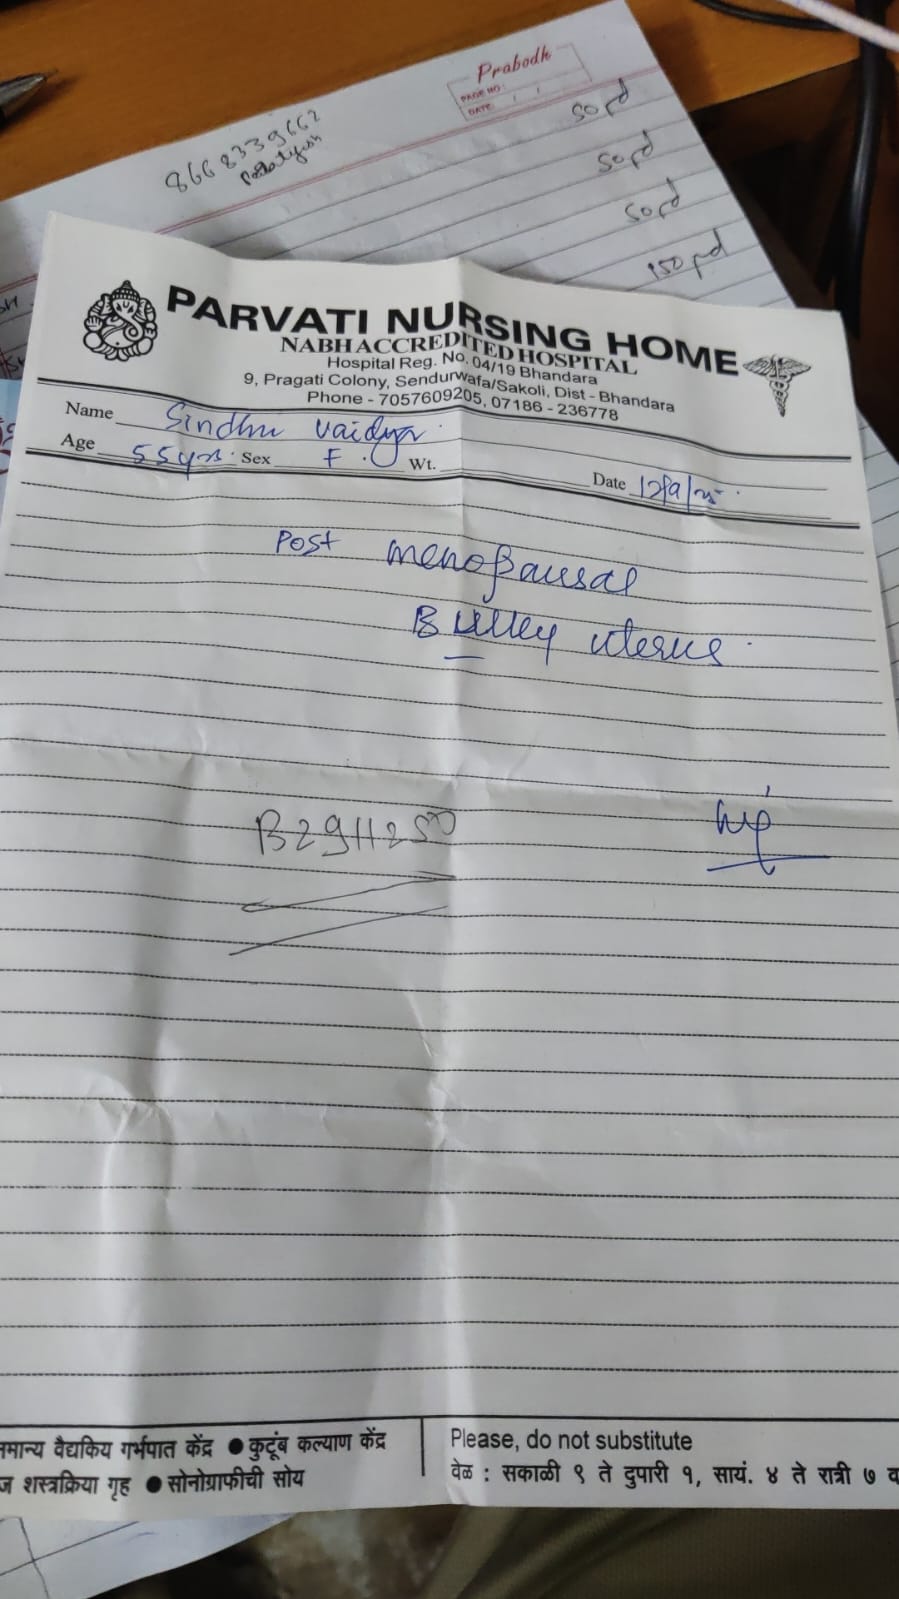 Prabodh
PAGE NO:
DATE: / /
8668339662
50 rd
50 rd
50 rd
150 rd
PARVATI NURSING HOME
NABH ACCREDITED HOSPITAL
Hospital Reg. No. 04/19 Bhandara
9, Pragati Colony, Sendurwafa/Sakoli, Dist - Bhandara
Phone - 7057609205, 07186 - 236778
Name Sindhu Vaidya
Age 55yrs. Sex F. Wt.
Date 12/9/25
Post menopausal
Bulky uterus.
मान्य वैद्यकिय गर्भपात केंद्र ● कुटूंब कल्याण केंद्र
ज शस्त्रक्रिया गृह ● सोनोग्राफीची सोय
Please, do not substitute
वेळ : सकाळी ९ ते दुपारी १, सायं. ४ ते रात्री ७ व